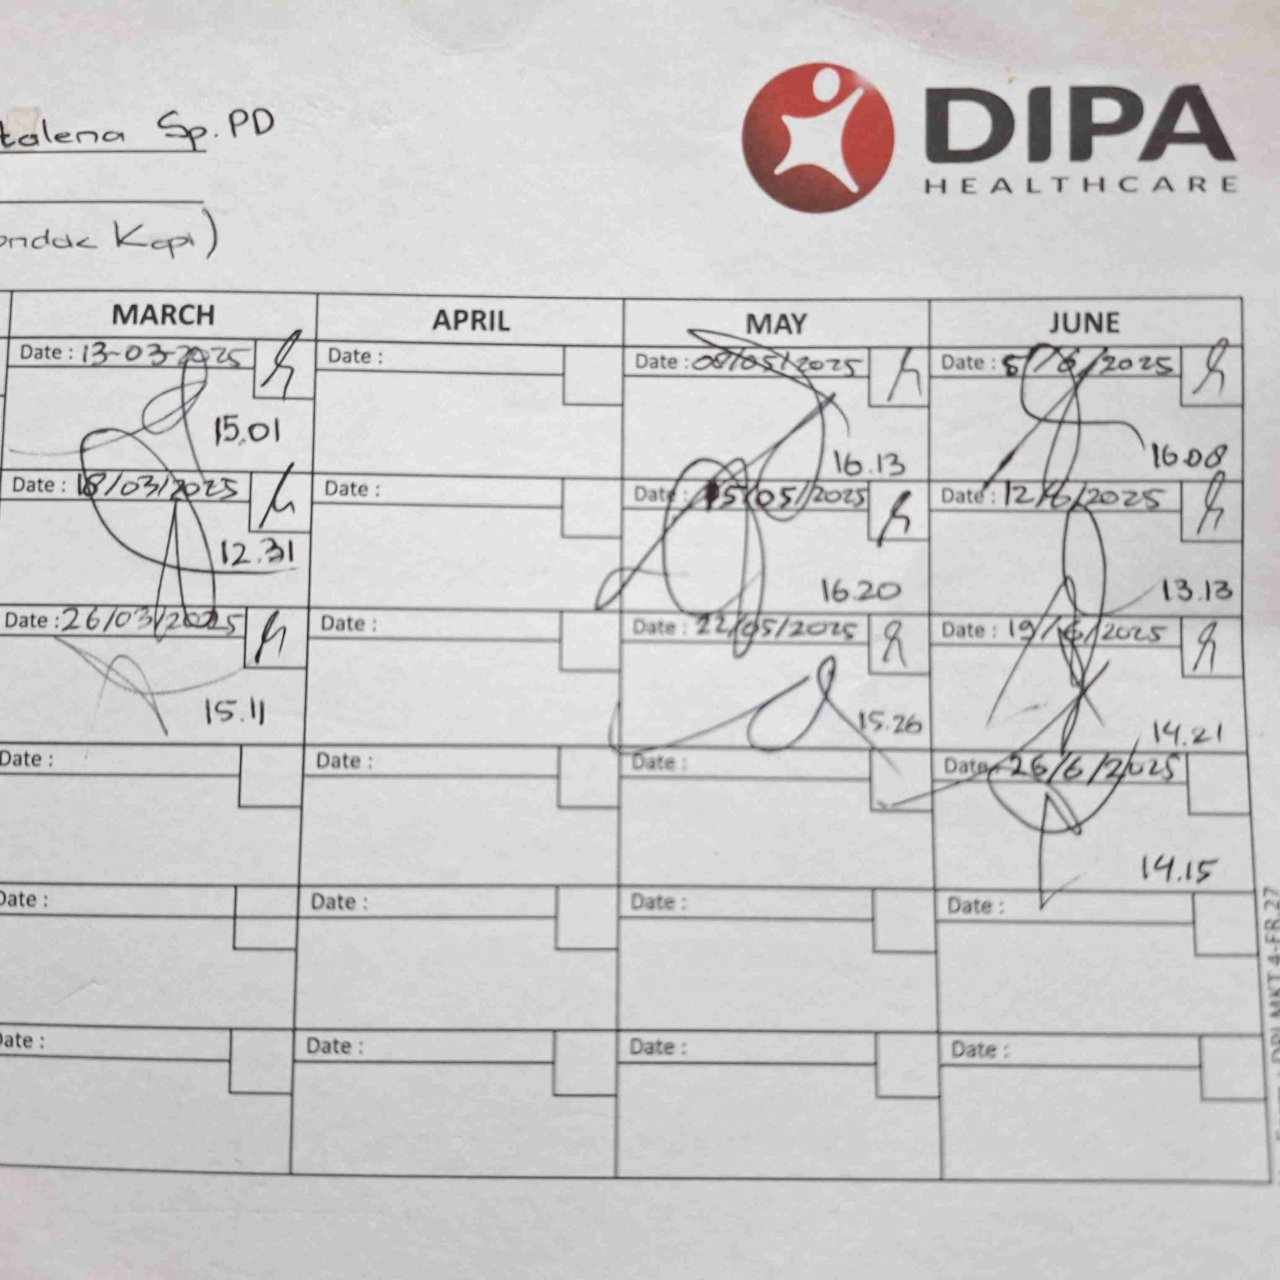 talena Sp.PD
DIPA
HEALTHCARE
ondok Kopi)
MARCH APRIL MAY JUNE
Date : 13-03-2025 Date : Date : 08/05/2025 Date : 5/6/2025
15.01 16.13 16.08
Date : 18/03/2025 Date : Date : 15/05/2025 Date : 12/6/2025
12.31 16.20 13.13
Date : 26/03/2025 Date : Date : 22/05/2025 Date : 19/6/2025
15.11 15.26 14.21
Date : Date : Date : Date : 26/6/2025
14.15
Date : Date : Date : Date :
Date : Date : Date : Date :